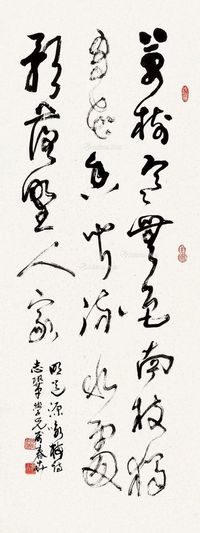 萬樹寒無色南枝獨
有花香聞流水處
影落野人家
明道源